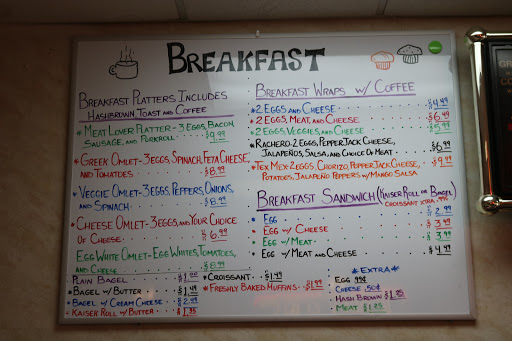 BREAKFAST
BREAKFAST PLATTERS INCLUDES
HASHBROWN, TOAST AND COFFEE
*MEAT LOVER PLATTER - 3 EGGS, BACON,
SAUSAGE, AND PORKROLL $9.99
*GREEK OMLET - 3 EGGS, SPINACH, FETA CHEESE,
AND TOMATOES $8.99
*VEGGIE OMLET - 3 EGGS, PEPPERS, ONIONS,
AND SPINACH $8.99
*CHEESE OMLET - 3 EGGS AND YOUR CHOICE
OF CHEESE $6.99
EGG WHITE OMLET - EGG WHITES, TOMATOES,
AND CHEESE $8.99
PLAIN BAGEL $1.00
*BAGEL W/ BUTTER $1.49
*BAGEL W/ CREAM CHEESE $2.49
KAISER ROLL W/ BUTTER $1.35
*CROISSANT $1.49
*FRESHLY BAKED MUFFINS $1.99
BREAKFAST WRAPS W/ COFFEE
*2 EGGS AND CHEESE $4.49
*2 EGGS, MEAT, AND CHEESE $6.49
*2 EGGS, VEGGIES, AND CHEESE $5.99
*RACHERO - 2 EGGS, PEPPER JACK CHEESE,
JALAPEÑOS, SALSA, AND CHOICE OF MEAT $6.99
*TEX MEX - 2 EGGS, CHORIZO, PEPPER JACK CHEESE,
POTATOES, JALAPEÑO POPPERS W/ MANGO SALSA $9.99
BREAKFAST SANDWICH (KAISER ROLL OR BAGEL)
CROISSANT XTRA .99¢
*EGG $2.99
*EGG W/ CHEESE $3.49
*EGG W/ MEAT $3.99
*EGG W/ MEAT AND CHEESE $4.49
*EXTRA*
EGG 99¢
CHEESE .50¢
HASH BROWN $1.25
MEAT $1.25